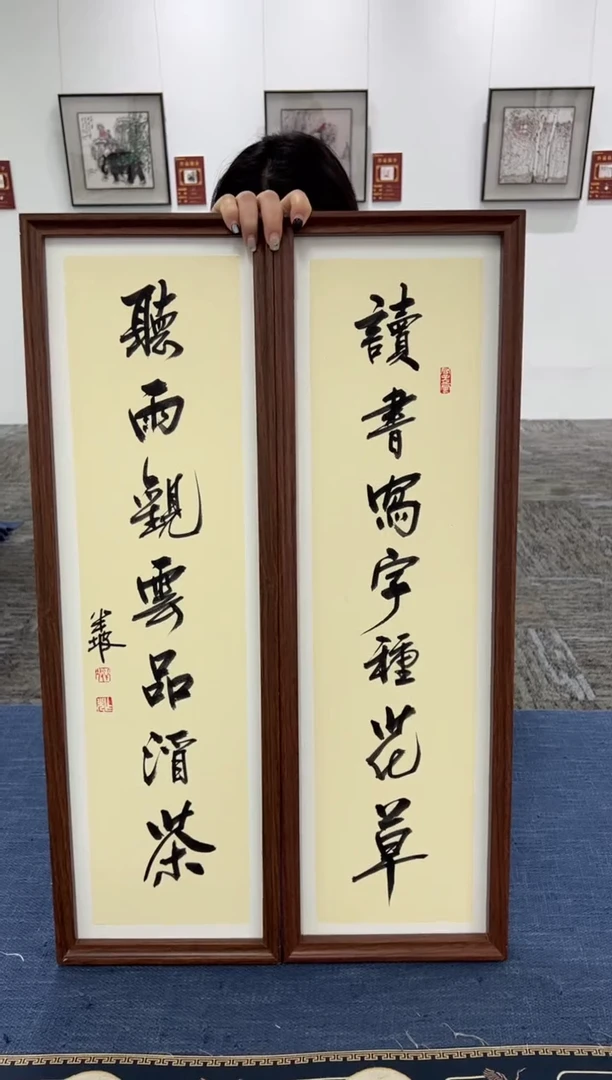 讀書寫字種花草
聽雨觀雲品清茶
半坡